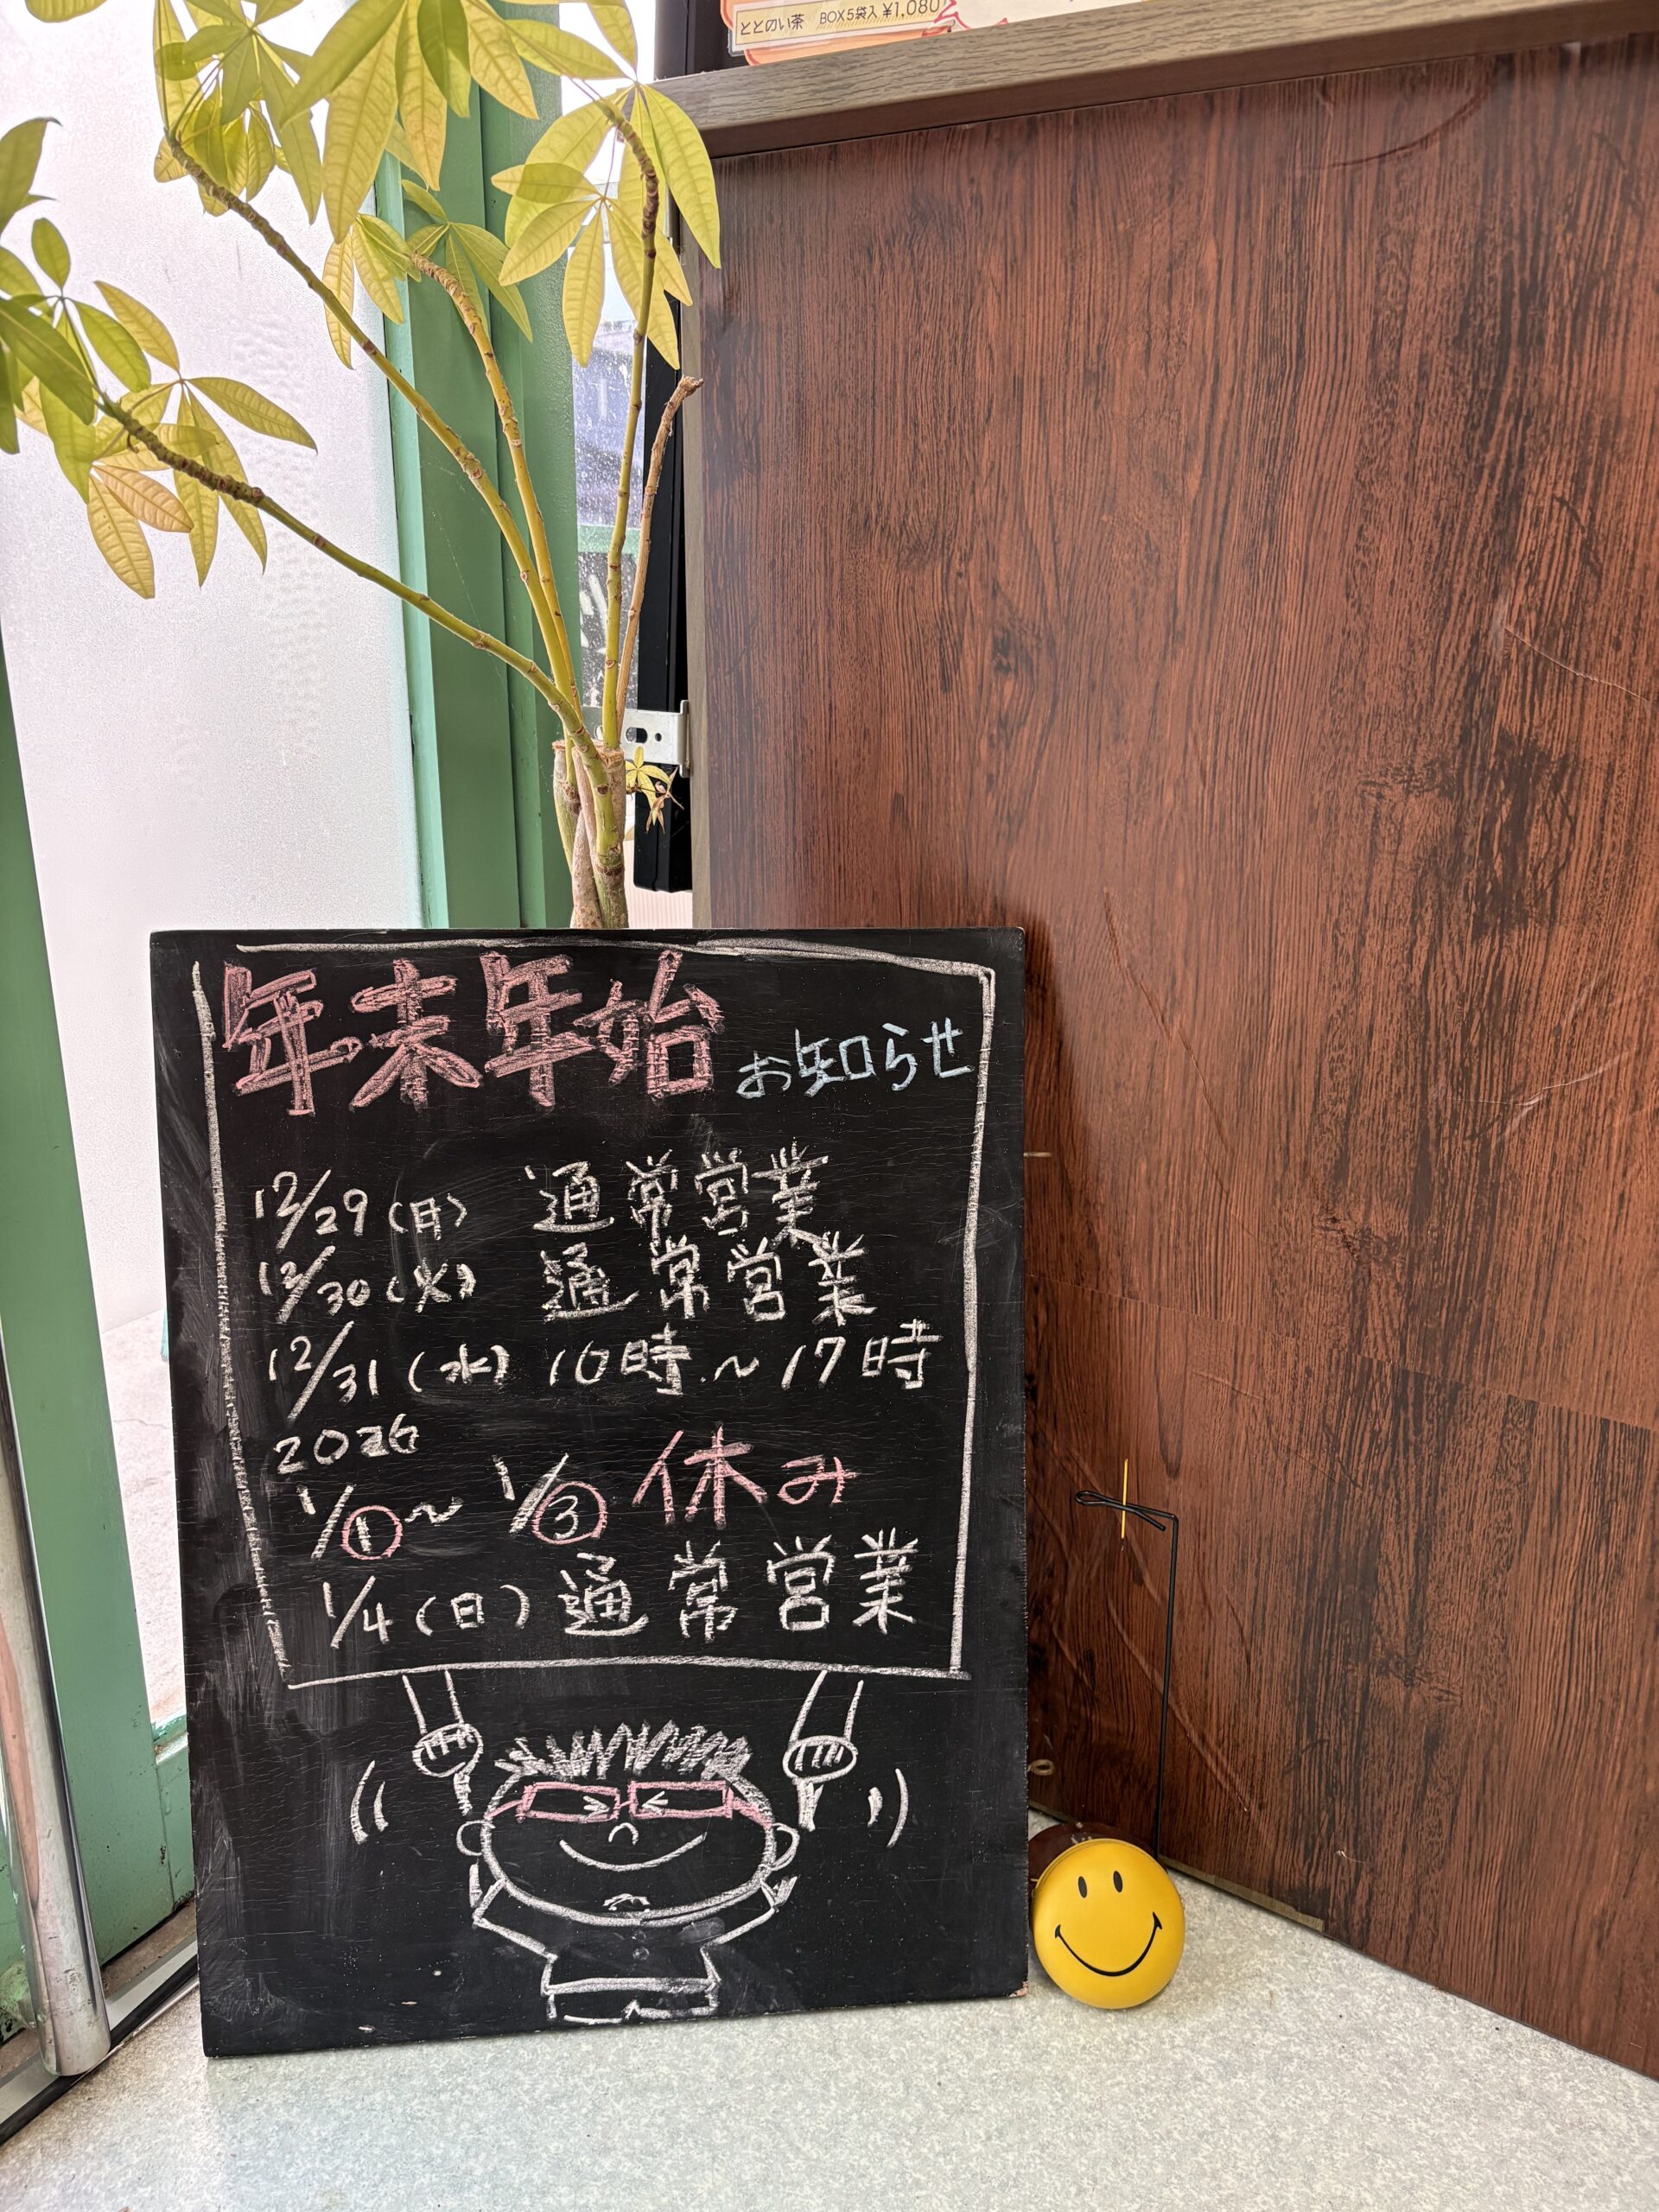 ととのい茶 BOX5袋入 ¥1,080
年末年始 お知らせ
12/29(月) 通常営業
12/30(火) 通常営業
12/31(水) 10時~17時
2026
1/1~1/3 休み
1/4(日) 通常営業